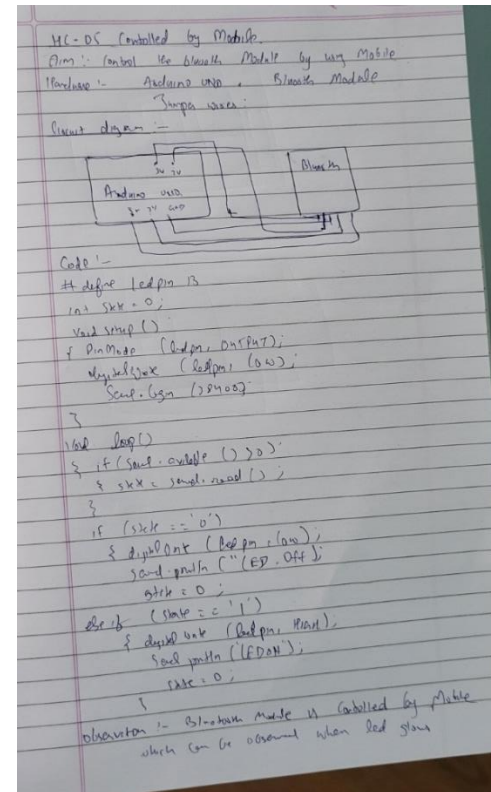 HC-05 Controlled by Mobile
Aim :- Control the bluetooth Module by using Mobile
Hardware :- Arduino UNO, Bluetooth Module
Jumper wires.
Circuit diagram :-
Arduino UNO
GND
Code :-
# define ledpin 13
int state = 0;
void setup ()
{ PinMode (ledpin, OUTPUT);
digitalWrite (ledpin, LOW);
Serial.begin (38400);
}
void loop()
{ if (serial.available () > 0)
{ state = serial.read () ;
}
if (state == '0')
{ digitalWrite (ledpin, LOW);
serial.println ("LED. Off");
state = 0 ;
else if (state == '1')
{ digital write (ledpin, HIGH);
Serial println ('LEDON');
state = 0 ;
}
observation :- Bluetooth Module is Controlled by Mobile
which can be observed when led glows